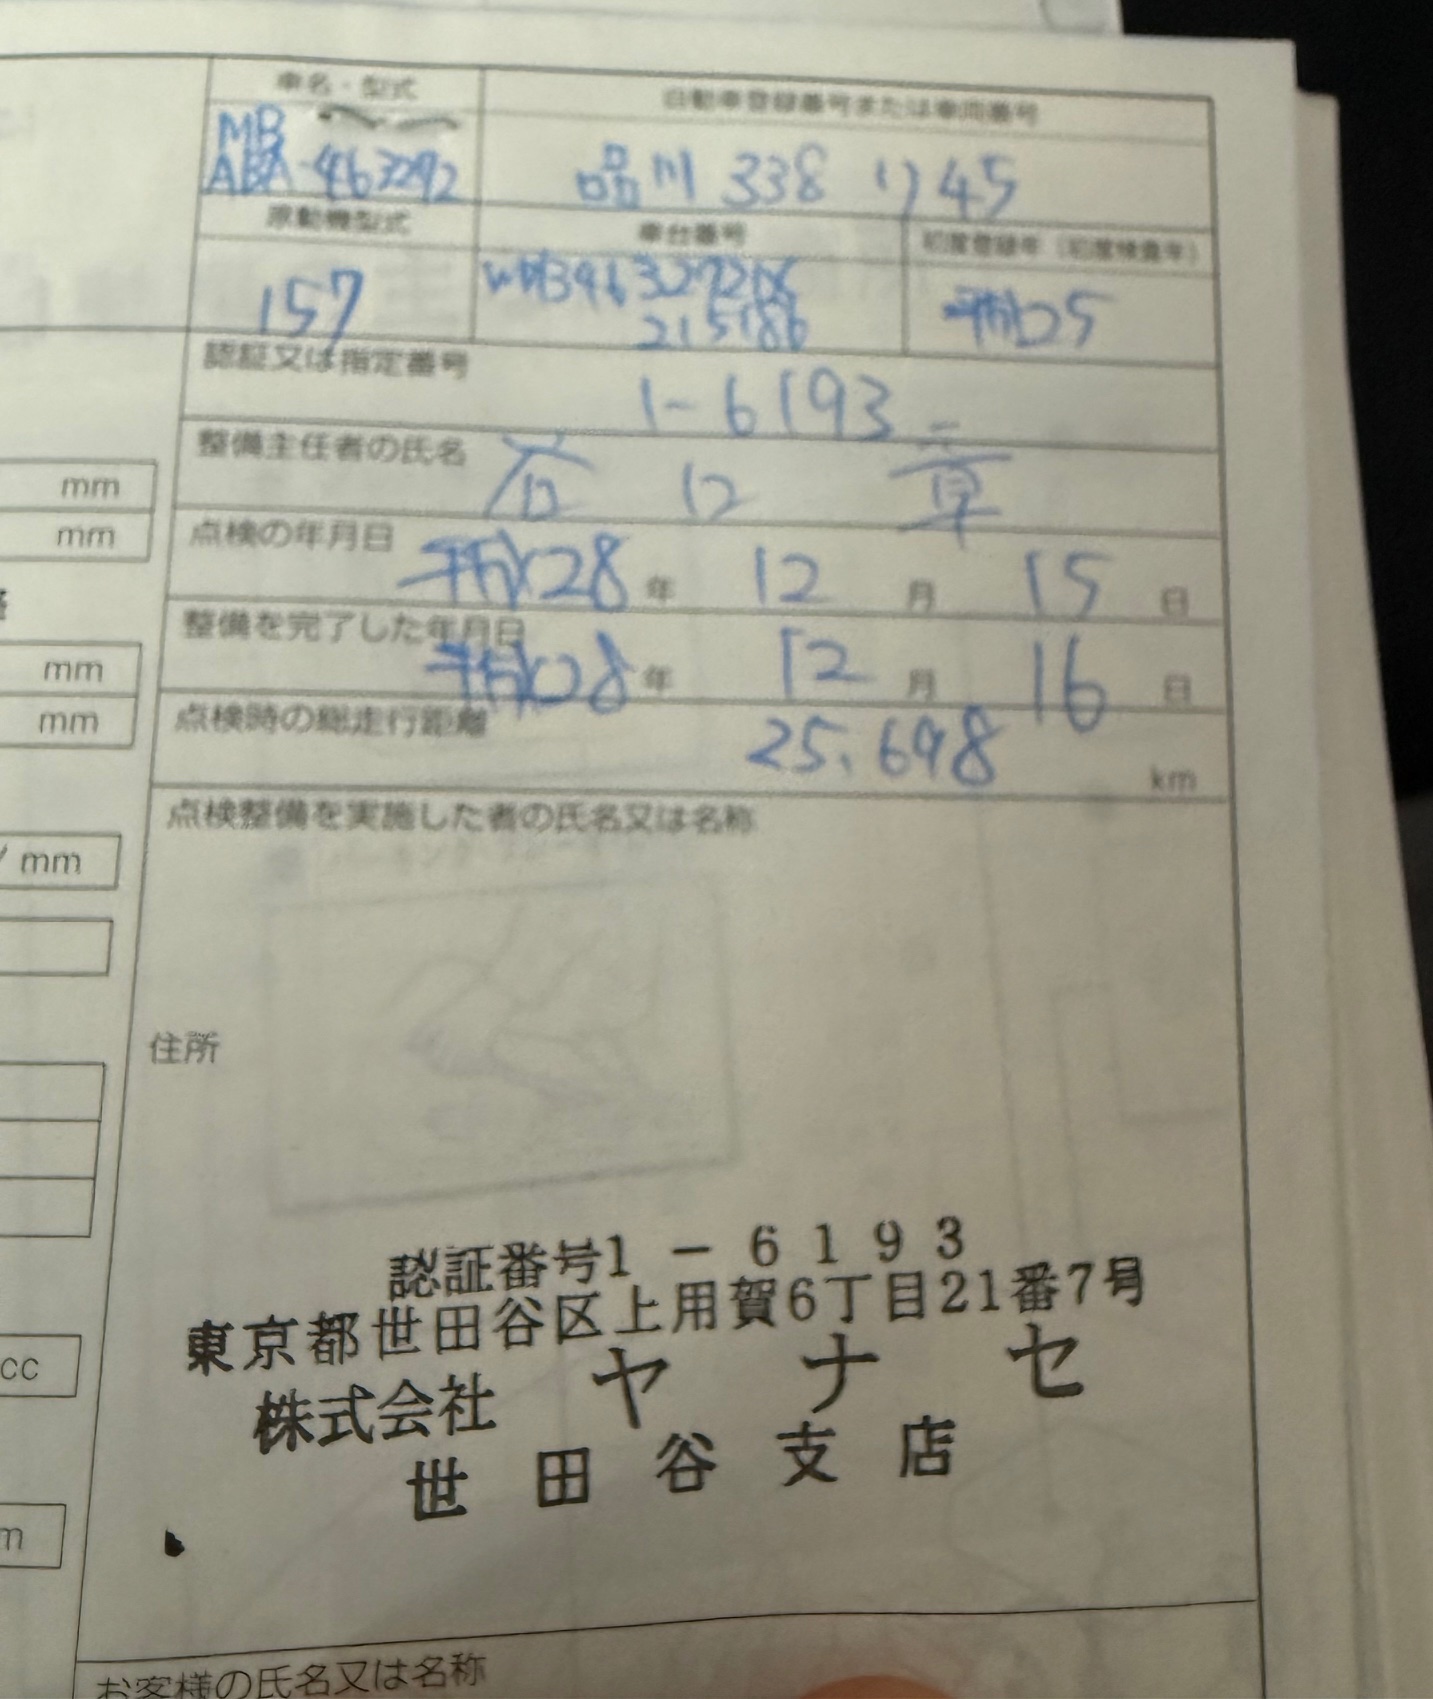 車名・型式
自動車登録番号または車両番号
MB
ABA-463272
品川 338 り 45
原動機型式
車台番号
初度登録年（初度検査年）
157
WDB4632722X
215186
平成25
認証又は指定番号
1-6193
整備主任者の氏名
点検の年月日
平成28 年 12 月 15 日
整備を完了した年月日
平成28 年 12 月 16 日
点検時の総走行距離
25,698 km
点検整備を実施した者の氏名又は名称
住所
認証番号1-6193
東京都世田谷区上用賀6丁目21番7号
株式会社 ヤナセ
世田谷支店
お客様の氏名又は名称
mm
mm
mm
mm
/ mm
cc
m